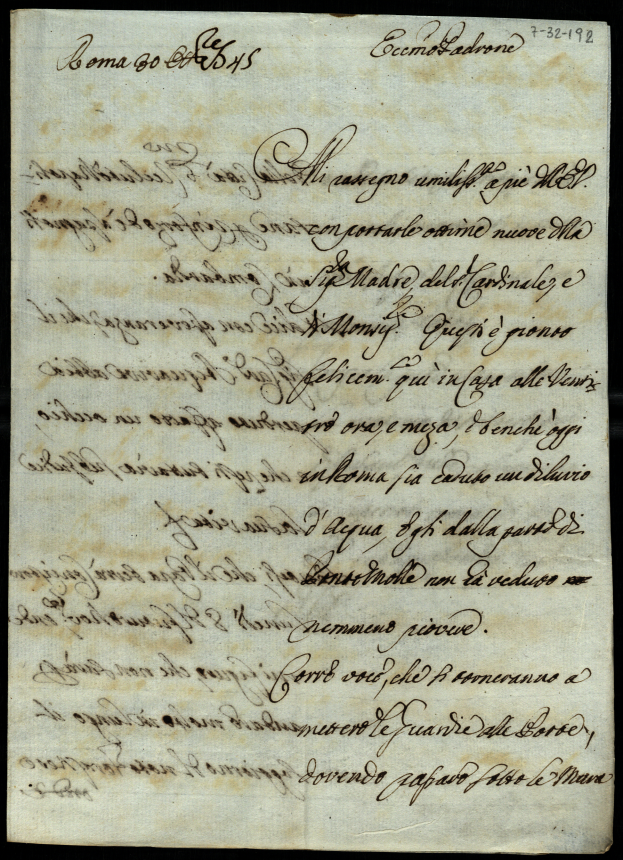 7-32-192
Roma 30 Ott.re 1745
Eccmo Padrone
Mi rassegno umiliss.o a piè dell'E.V.
con portarle ottime nuove della
Sig.ra Madre, del Sr. Cardinale, e
di Monsig.re Questi è gionto
felicem.te qui in Casa alle Venti-
tré ora, e meza, e benchè oggi
in Roma sia caduto un diluvio
d'Acqua, Egli dalla parte di
Ponte Molle non hà veduto
nemmeno piovere.
Corre voce, che si torneranno a
mettere le Guardie alle Porte,
dovendo passare sotto le Mura